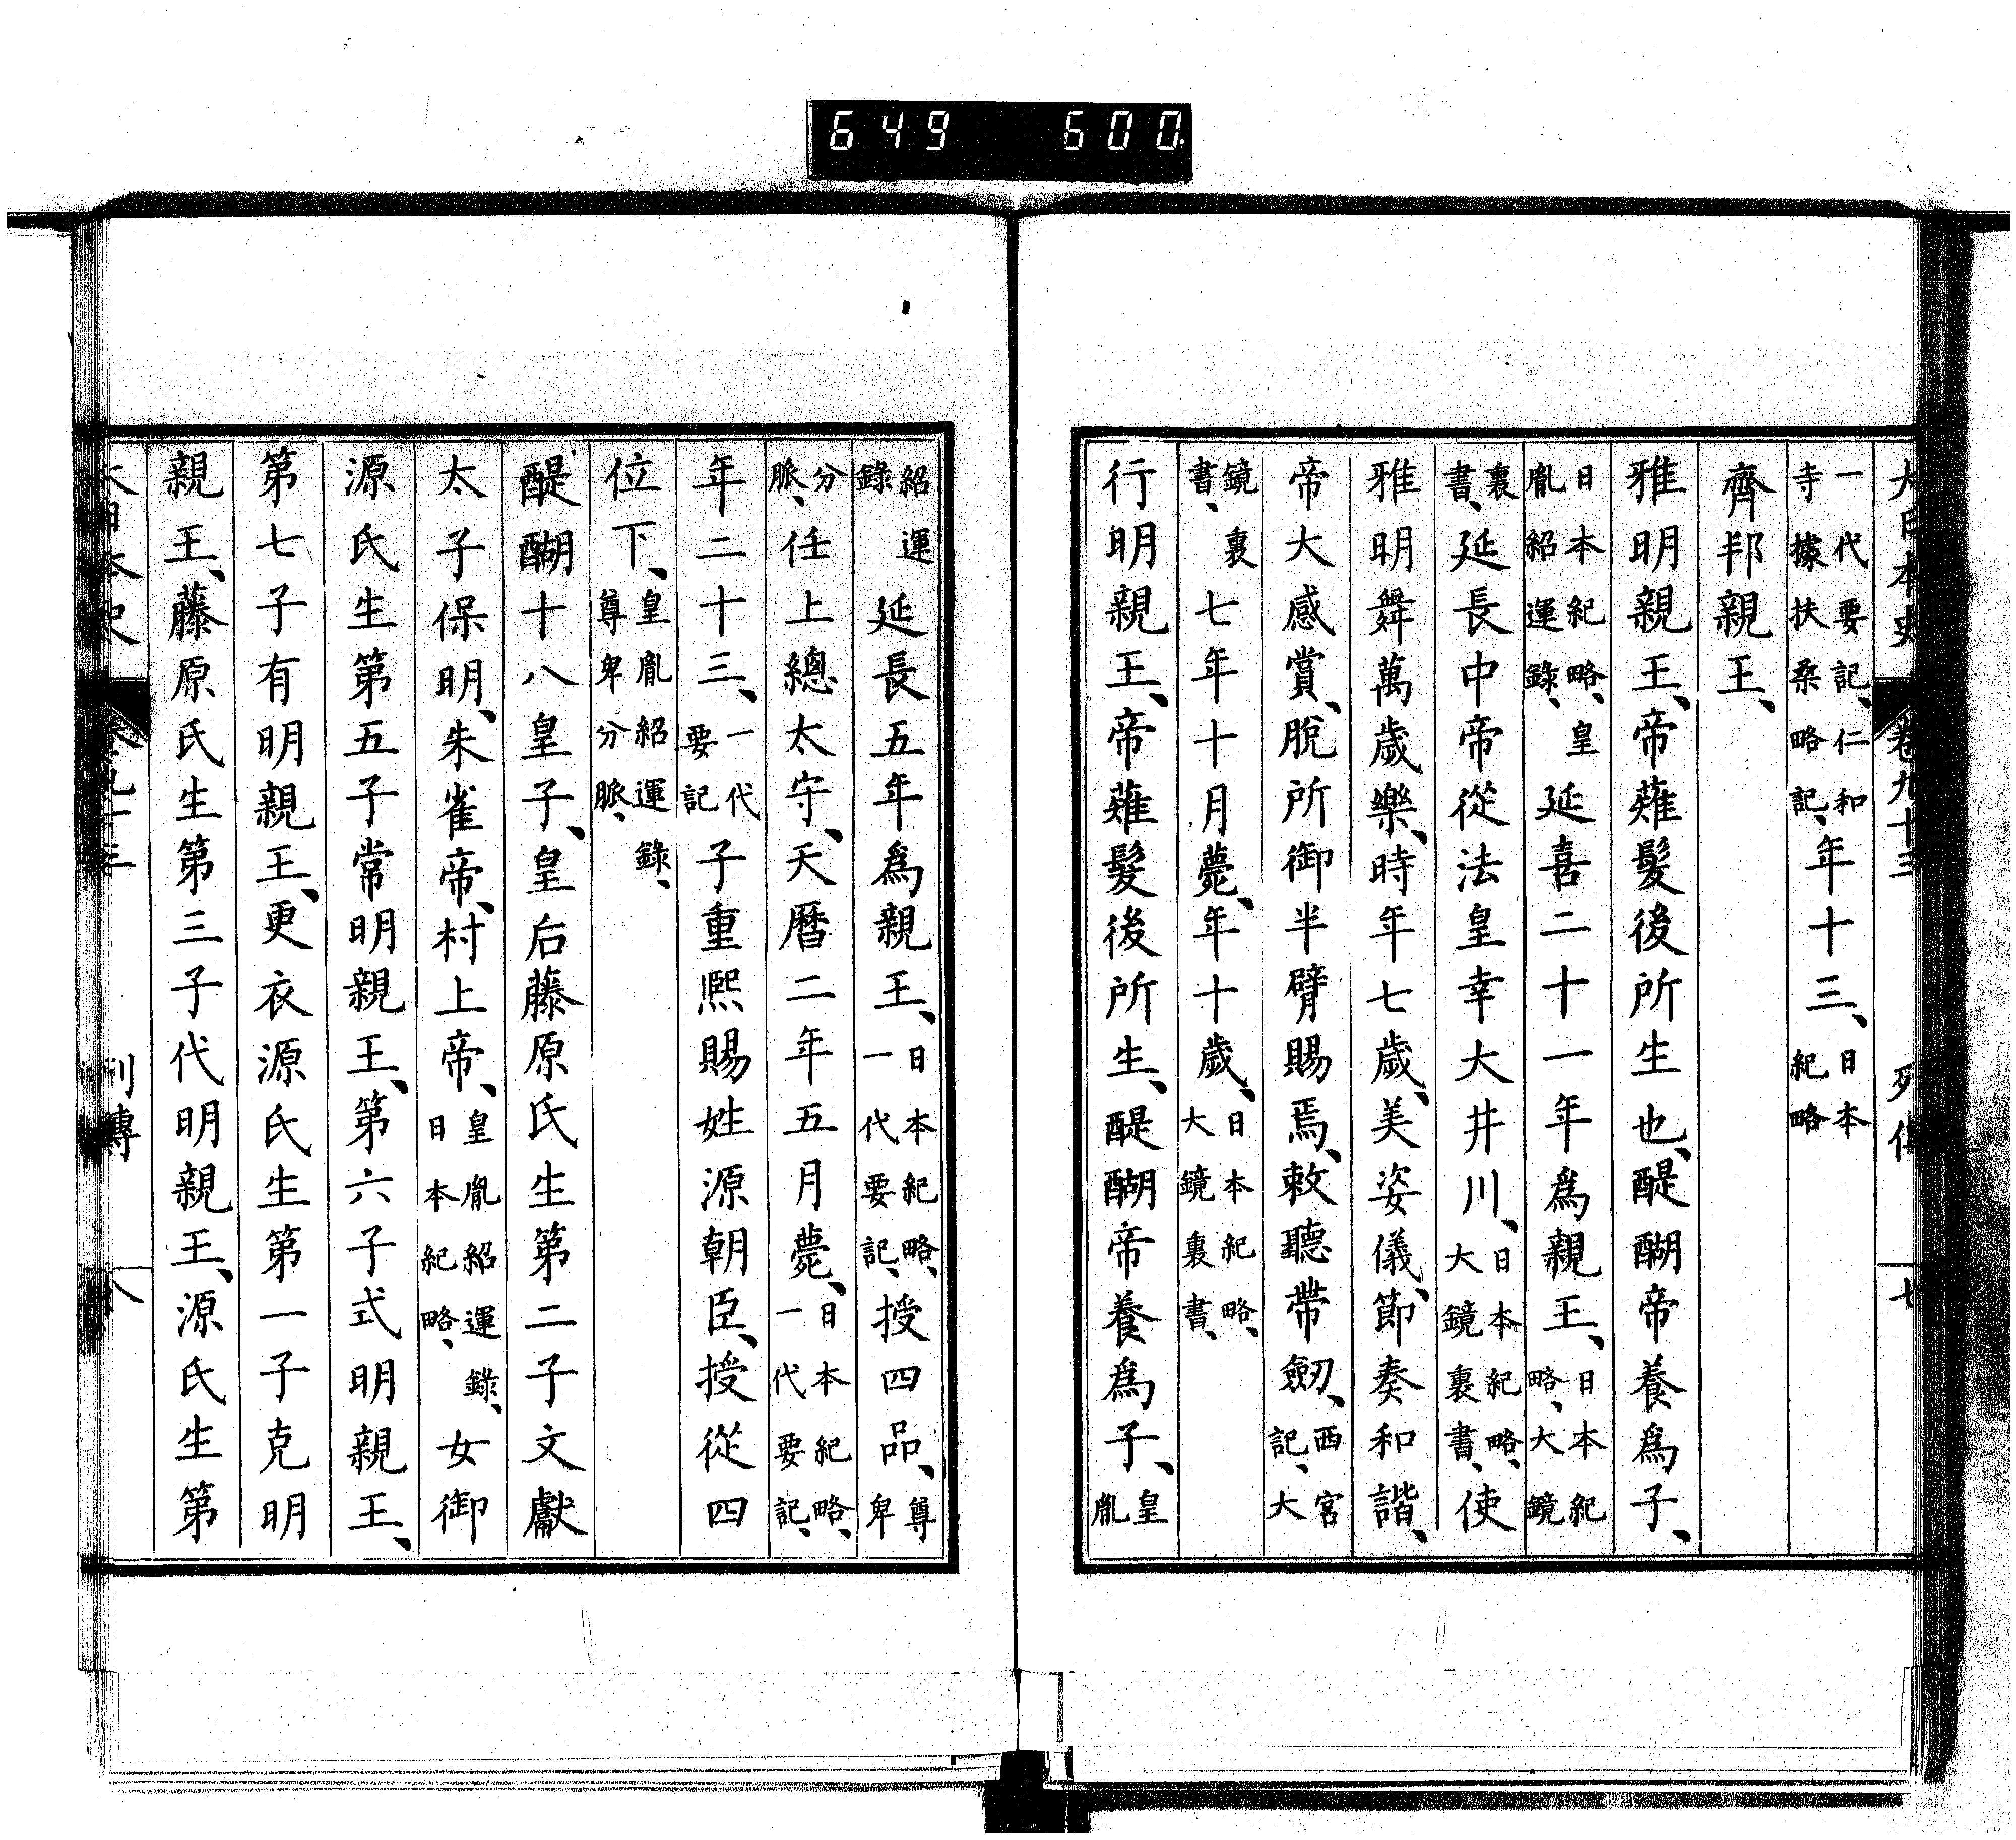 大日本史 卷九十三 列傳 七
一代要記、仁和寺據扶桑略記、年十三、日本紀略
齊邦親王、
雅明親王、帝薙髮後所生也、醍醐帝養爲子、
日本紀略、皇胤紹運錄、延喜二十一年爲親王、日本紀略、大鏡
裏書、延長中帝從法皇幸大井川、日本紀略、大鏡裏書、使
雅明舞萬歲樂、時年七歲、美姿儀、節奏和諧、
帝大感賞、脫所御半臂賜焉、敕聽帶劔、西宮記、大
鏡裏書、七年十月薨、年十歲、日本紀略、大鏡裏書、
行明親王、帝薙髮後所生、醍醐帝養爲子、皇胤
紹運錄延長五年爲親王、日本紀略、一代要記、授四品、尊卑
分脈、任上總太守、天曆二年五月薨、日本紀略、一代要記、
年二十三、一代要記子重熙賜姓源朝臣、授從四
位下、皇胤紹運錄、尊卑分脈、
醍醐十八皇子、皇后藤原氏生第二子文獻
太子保明、朱雀帝、村上帝、皇胤紹運錄、日本紀略、女御
源氏生第五子常明親王、第六子式明親王、
第七子有明親王、更衣源氏生第一子克明
親王、藤原氏生第三子代明親王、源氏生第
大日本史 卷九十三 列傳 八
649 600